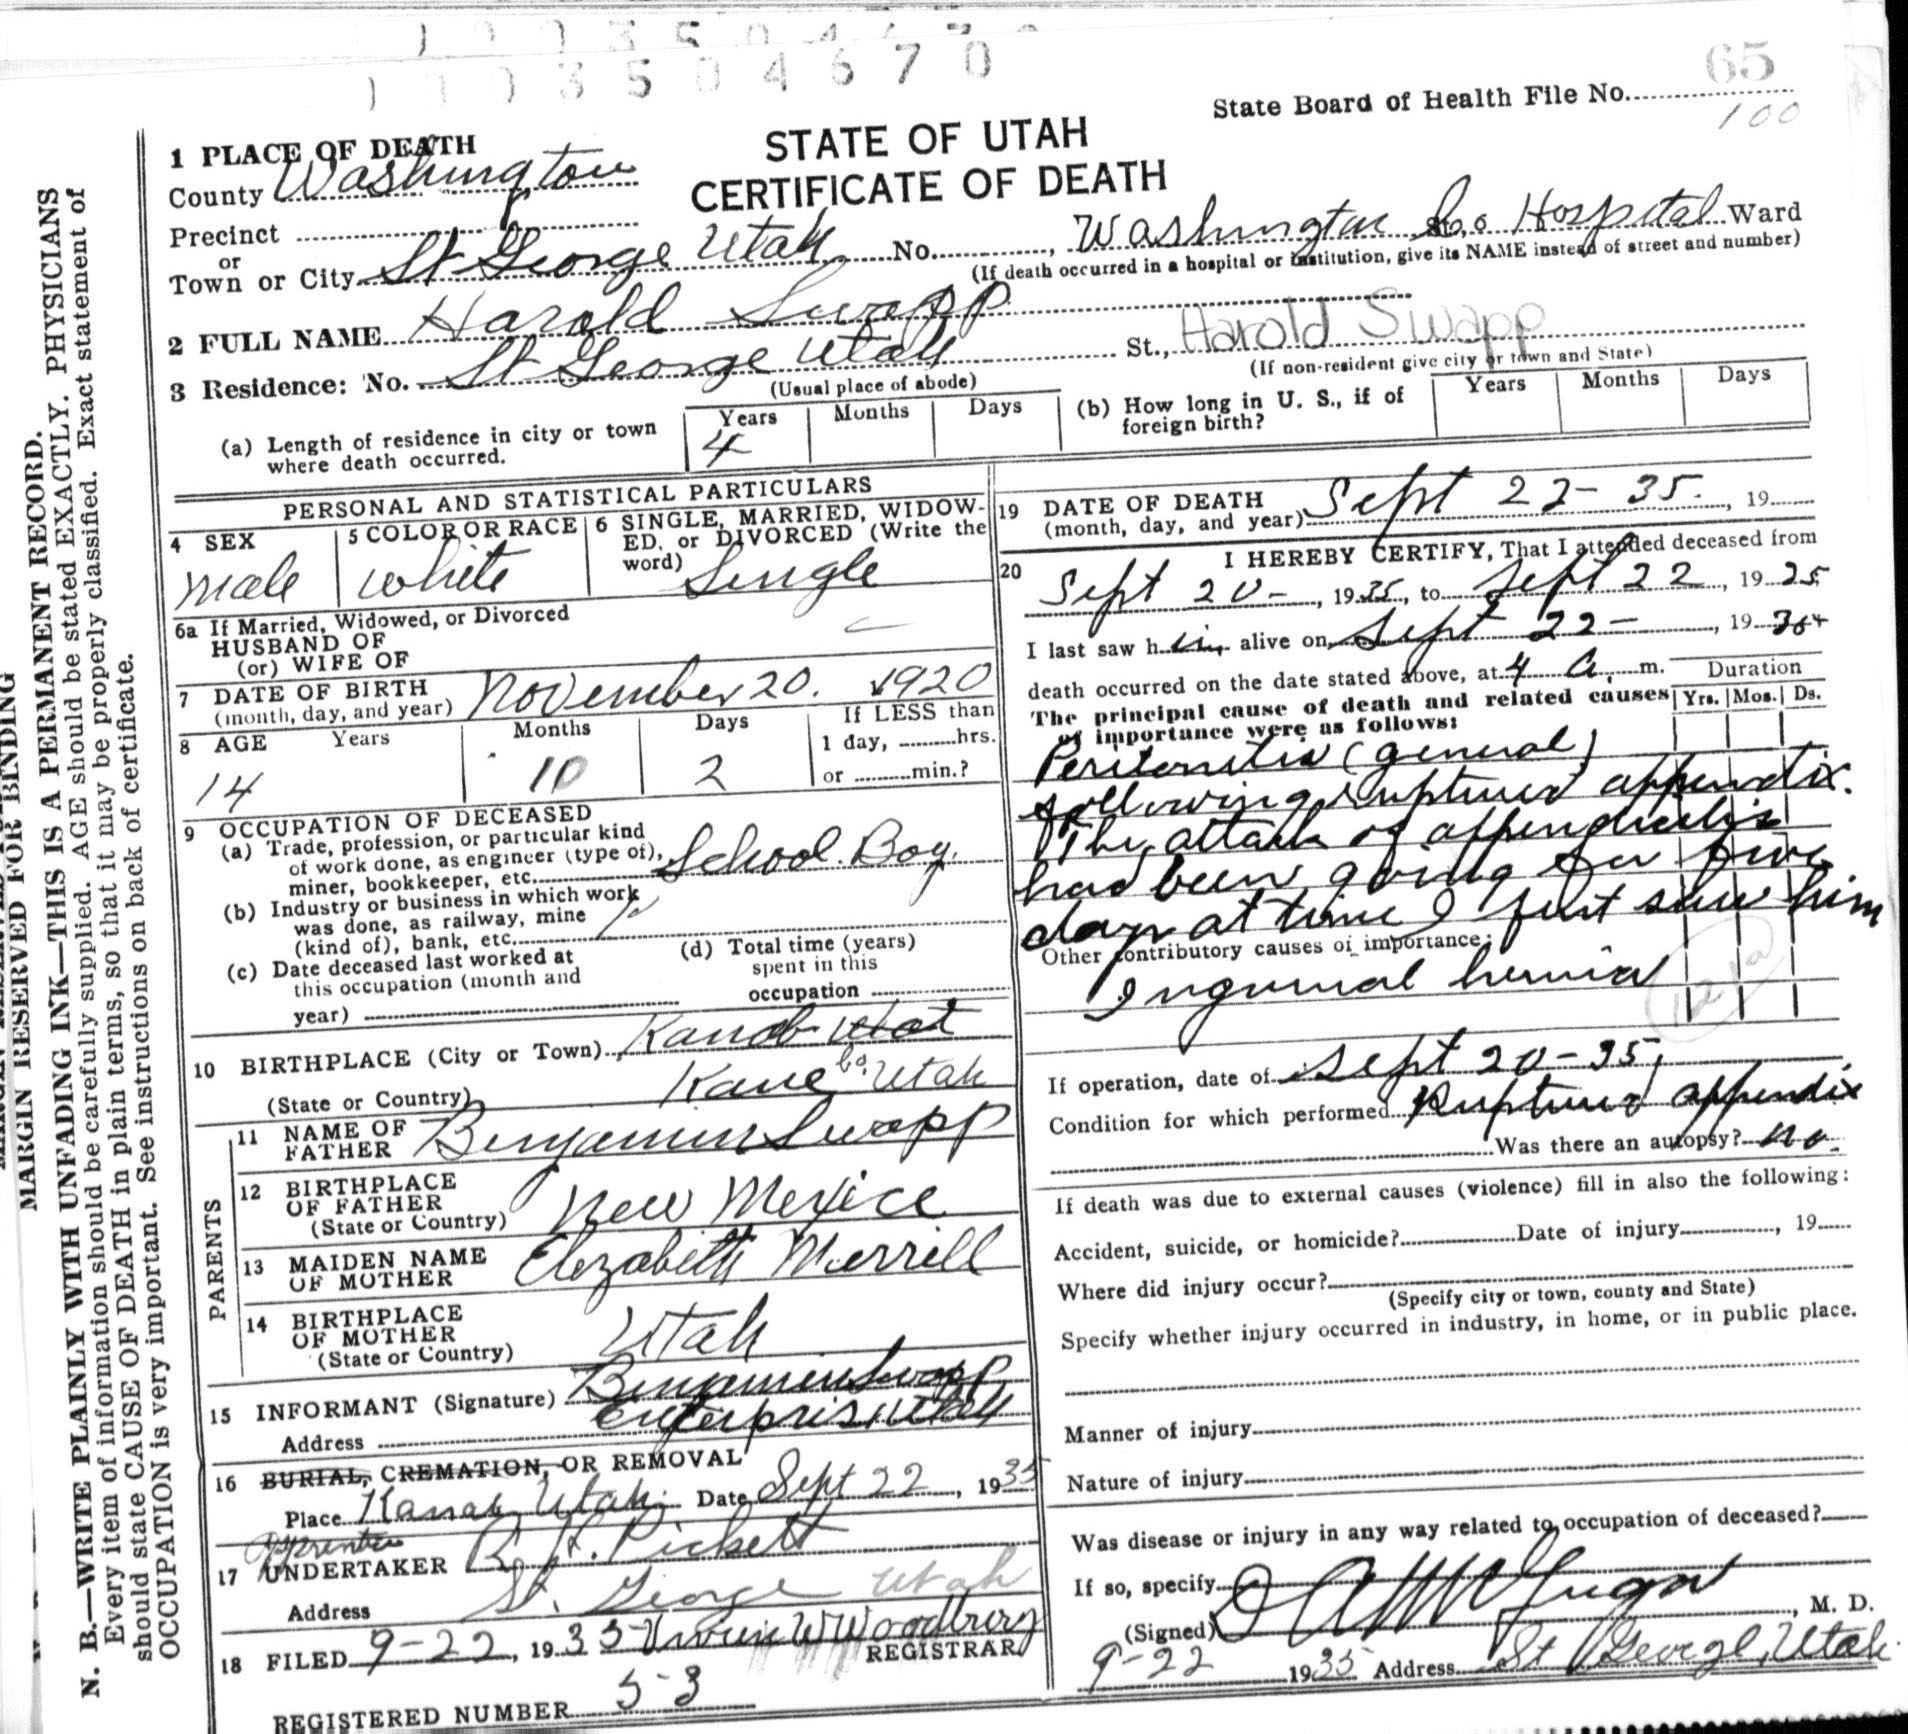 1 0 0 3 5 0 4 6 7 0
1 0 0 3 5 0 4 6 7 0
65
State Board of Health File No.
100
STATE OF UTAH
CERTIFICATE OF DEATH
1 PLACE OF DEATH
County Washington
Precinct
or
Town or City St George Utah No. , Washington Co Hospital Ward
(If death occurred in a hospital or institution, give its NAME instead of street and number)
2 FULL NAME Harold Swapp
3 Residence: No. St George Utah St., Harold Swapp
(Usual place of abode)
(If non-resident give city or town and State)
(a) Length of residence in city or town where death occurred.
Years Months Days
4
(b) How long in U. S., if of foreign birth?
Years Months Days
PERSONAL AND STATISTICAL PARTICULARS
4 SEX
male
5 COLOR OR RACE
white
6 SINGLE, MARRIED, WIDOW-
ED, or DIVORCED (Write the
word) Single
6a If Married, Widowed, or Divorced
HUSBAND OF
(or) WIFE OF
7 DATE OF BIRTH
(month, day, and year) November 20. 1920
8 AGE Years Months Days If LESS than
1 day, hrs.
or min.?
14 10 2
9 OCCUPATION OF DECEASED
(a) Trade, profession, or particular kind
of work done, as engineer (type of),
miner, bookkeeper, etc. School Boy
(b) Industry or business in which work
was done, as railway, mine
(kind of), bank, etc.
(c) Date deceased last worked at
this occupation (month and
year)
(d) Total time (years)
spent in this
occupation
10 BIRTHPLACE (City or Town) Kanab
(State or Country) Kane Co. Utah
PARENTS
11 NAME OF
FATHER Benjamin Swapp
12 BIRTHPLACE
OF FATHER
(State or Country) New Mexico
13 MAIDEN NAME
OF MOTHER Elezabeth Merrill
14 BIRTHPLACE
OF MOTHER
(State or Country) Utah
15 INFORMANT (Signature) Benjamin Swapp
Address Enterpris Utah
16 BURIAL, CREMATION, OR REMOVAL
Place Kanab Utah. Date Sept 22, 1935
17 UNDERTAKER Pickett
Address St. George Utah
18 FILED 9-22, 1935 Woodbury
REGISTRAR
REGISTERED NUMBER 53
19 DATE OF DEATH
(month, day, and year) Sept 22-35., 19
20 I HEREBY CERTIFY, That I attended deceased from
Sept 20-, 1935, to Sept 22, 1925
I last saw him alive on Sept 22-, 19
death occurred on the date stated above, at 4 a. m.
Duration
Yrs. Mos. Ds.
The principal cause of death and related causes
of importance were as follows:
Peritonitis (general)
following ruptured appendix.
The attack of appendicitis
had been going for five
days at time I first saw him
Other contributory causes of importance:
Inguinal hernia
121a
If operation, date of Sept 20-35,
Condition for which performed Ruptured appendix
Was there an autopsy? no.
If death was due to external causes (violence) fill in also the following:
Accident, suicide, or homicide? Date of injury , 19
Where did injury occur?
(Specify city or town, county and State)
Specify whether injury occurred in industry, in home, or in public place.
Manner of injury
Nature of injury
Was disease or injury in any way related to occupation of deceased?
If so, specify
(Signed) , M. D.
9-22 1935 Address St George, Utah
MARGIN RESERVED FOR BINDING
N. B.—WRITE PLAINLY WITH UNFADING INK—THIS IS A PERMANENT RECORD.
Every item of information should be carefully supplied. AGE should be stated EXACTLY. PHYSICIANS
should state CAUSE OF DEATH in plain terms, so that it may be properly classified. Exact statement of
OCCUPATION is very important. See instructions on back of certificate.